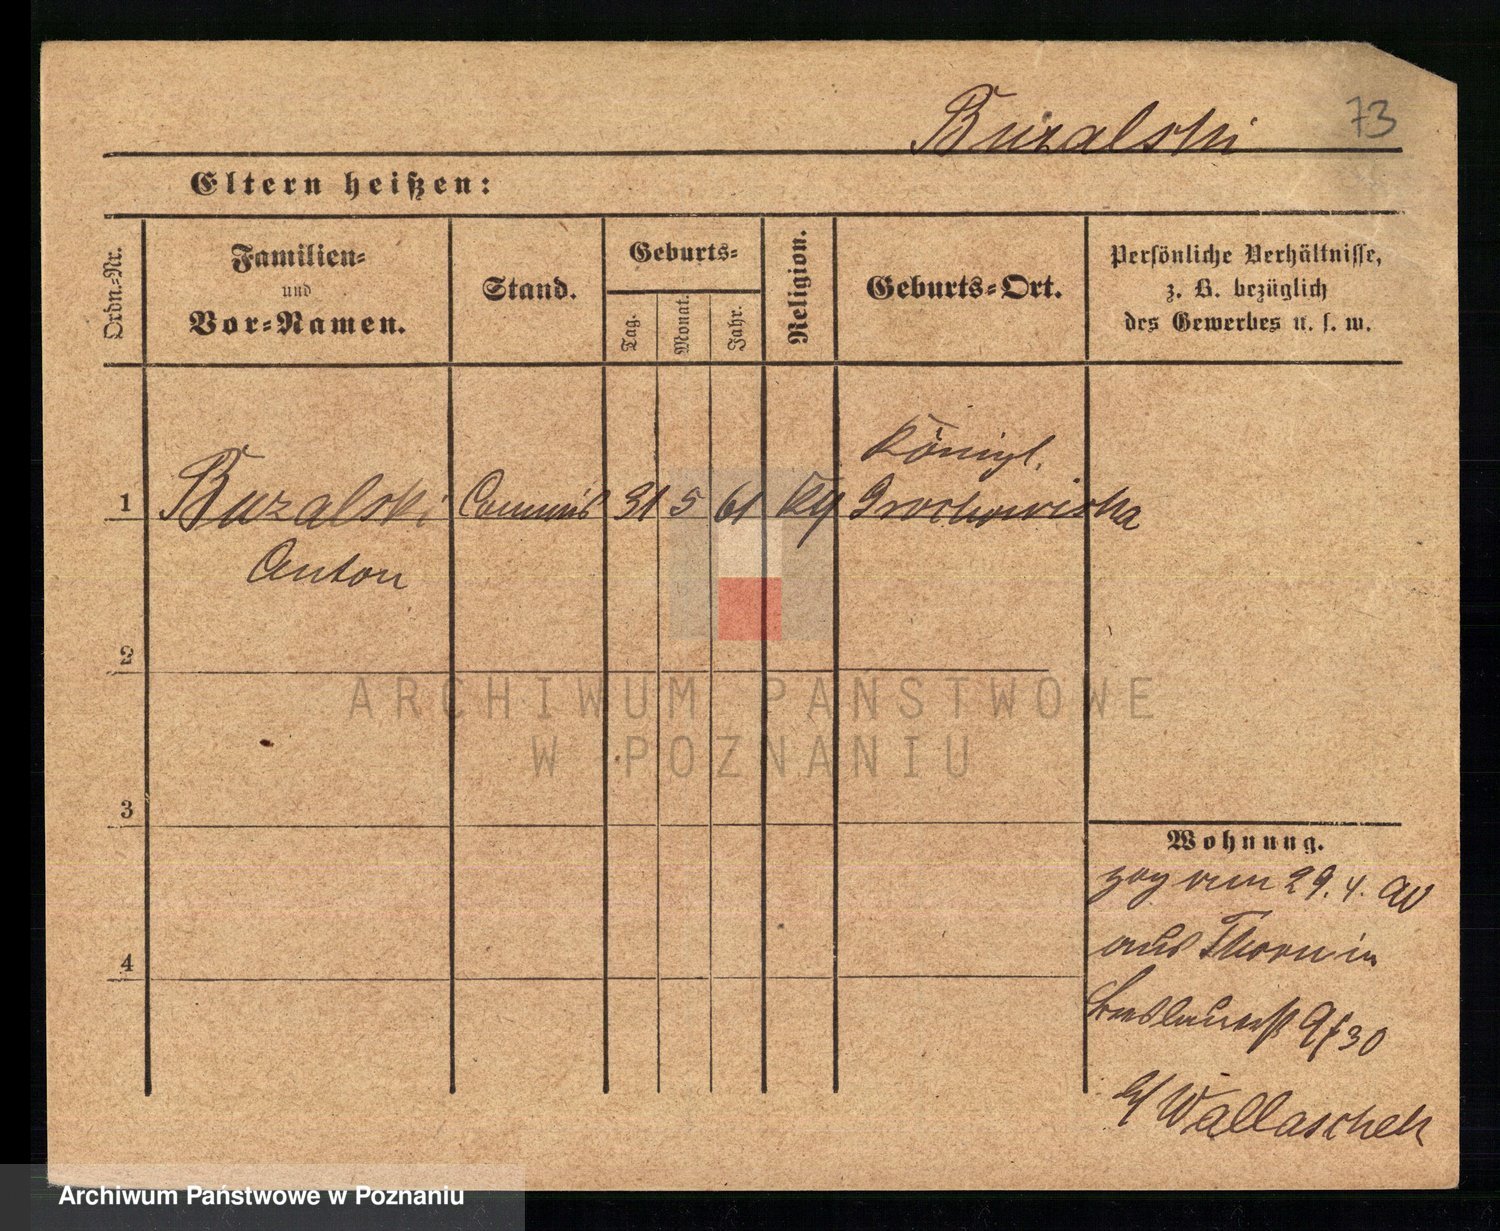 Buzalski 73
Eltern heißen:
Ordn.-Nr.
Familien-
und
Vor-Namen.
Stand.
Geburts-
Tag.
Monat.
Jahr.
Religion.
Geburts-Ort.
Persönliche Verhältnisse,
z. B. bezüglich
des Gewerbes u. s. w.
Königl.
1 Buzalski Commis 31 5 61 Grochowiska
Anton
2
3
4
Wohnung.
zog am 29. 4. 90
aus Thorn in
Breslauerst 9/30
b/ Wallaschek
ARCHIWUM PAŃSTWOWE
W POZNANIU
Archiwum Państwowe w Poznaniu